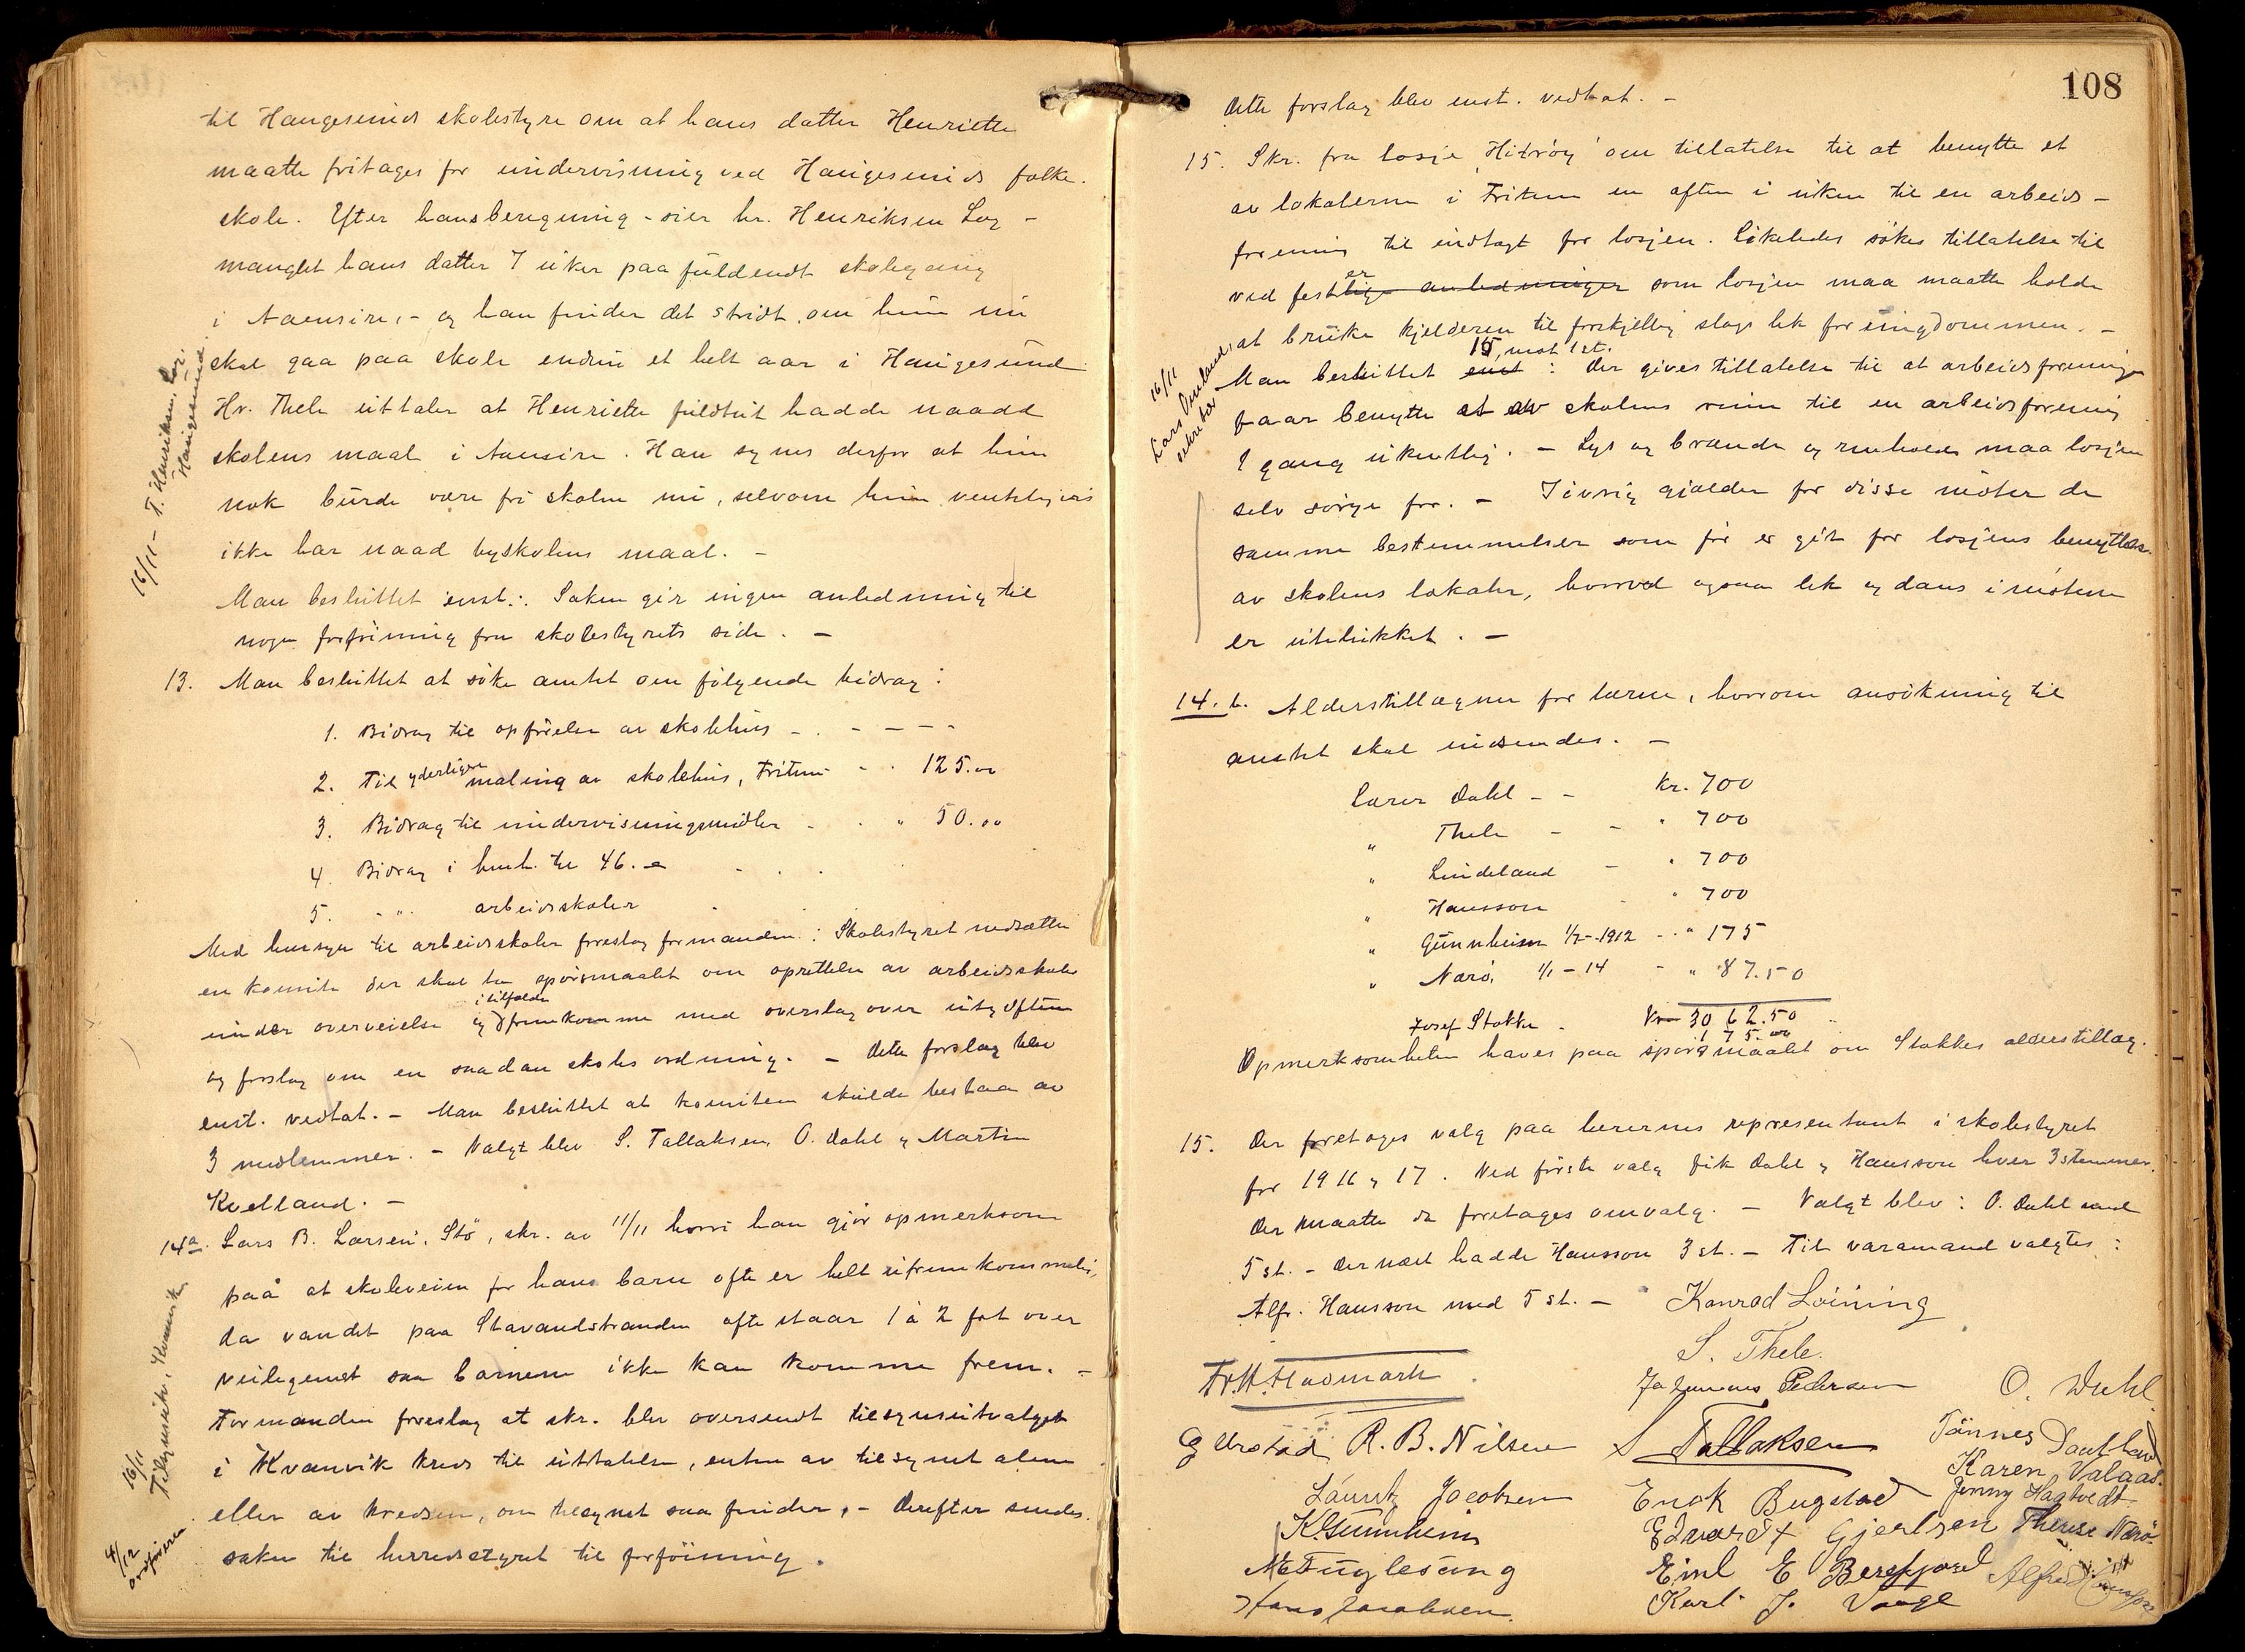 til Haugesunds skolestyre om at hans datter Henriette
maatte fritages for undervisning ved Haugesunds folke-
skole. Efter hans beregning - sier hr. Henriksen Log -
manglet hans datter 7 uker paa fuldendt skolegang
i Aaensire, - og han finder det stridt, om hun nu
skal gaa paa skole endnu et helt aar i Haugesund
Hr. Thele uttaler at Henriette fuldtut hadde naadd
skolens maal i Aaensire. Han synes derfor at hun
nok burde være fri skolen nu, selvom hun ventelgvis
ikke har naad byskolens maal. -
Man besluttet enst.: Saken gir ingen anledning til
nogen forföining fra skolestyrets side. -
16/11 - T. Henriksen Log.
Haugesund
13. Man besluttet at söke amtet om fölgende bidrag:
1. Bidrag til opförelse av skolehus - . - - - -
2. Til yderligere maling av skolehus, Fritun - - 125.00
3. Bidrag til undervisningsmidler - . " 50.00
4. Bidrag i henh. til 46. e - . .
5. - " - arbeidsskoler .
Med hensyn til arbeidsskoler foreslog formanden: Skolestyret nedsætter
en komite der skal ta spörsmaalet om oprettelse av arbeidsskole
under overveielse og i tilfælde fremkomme med overslag over utgiftene
og forslag om en saadan skoles ordning. - Dette forslag blev
enst. vedtat. - Man besluttet at komiteen skulde bestaa av
3 medlemmer. - Valgt blev S. Tallaksen, O. Dahl og Martin
Kvelland. -
14a. Lars B. Larsen, Stö, skr. av 11/11 hvori han gjör opmerksom
paa at skoleveien for hans barn ofte er helt ufremkommelig,
da vandet paa Stavandstranden ofte staar 1 à 2 fot over
veilegemet saa barnene ikke kan komme frem. -
Formanden foreslog at skr. blev oversendt tilsynsutvalget
i Kvanvik kreds til uttalelse, enten av tilsynet alene
eller av kredsen, om tilsynet saa finder, - Derefter sendes
saken til herredsstyret til forföining.
16/11
Tilsynsutv. Kvanvik
4/12
ordföreren
108
Dette forslag blev enst. vedtat. -
15. Skr. fra losje "Hitröy" om tillatelse til at benytte et
av lokalerne i Fritun en aften i uken til en arbeids-
forening til indtægt for losjen. Likeledes sökes tillatelse til
ved fester lige anledninger som losjen maa maatte holde
at bruke kjelderen til forskjellig slags lek for ungdommen. -
16/11
sekretær
Man besluttet enst 15, mot 1 st. : Der gives tillatelse til at arbeidsforeningen
faar benytte et av skolens rum til en arbeidsforening
1 gang ukentlig. - Lys og brænde og renhold maa losjen
selv sörge for. - Iövrig gjælder for disse möter de
samme bestemmelser som för er git for losjens benyttelse
av skolens lokaler, hvorved ogsaa lek og dans i möterne
er utelukket. -
14. b. Alderstillægene for lærere, hvorom ansökning til
amtet skal indsendes. -
Lærer Dahl - - kr. 700
" Thele - - " 700
" Lindeland - " 700
" Hansson - " 700
" Gunnheim 1/7 - 1912 - " 175
" Narö, 1/1 - 14 - " 87.50
Kr 3062.50
Josef Stakke - 175.00
Opmerksomheten haves paa spörsmaalet om Stakkes alderstillæg.
15. Der foretoges valg paa lærernes representant i skolestyret
for 1916 og 17. Ved förste valg fik Dahl og Hansson hver 3 stemmer.
Der maatte da foretages omvalg. - Valgt blev: O. Dahl med
5 st. - Dernæst hadde Hansson 3 st. - Til varamand valgtes:
Alfr. Hansson med 5 st. -
Konrad Löining
S. Thele.
Fr. M. Flodmark
Johannes Pedersen
O. Dahl
R. B. Nilsen
S Tallaksen
Tönnes
Lauritz Jacobsen
Enok Bugstad
Karen Valaas.
Jenny Hagtvedt
K Gunnheim
Edvardt Gjertsen
Therese Narö
M Fuglesang
Emil E Berefjord
Alfred Hansson
Hans Jacobsen
Karl J. Vaage